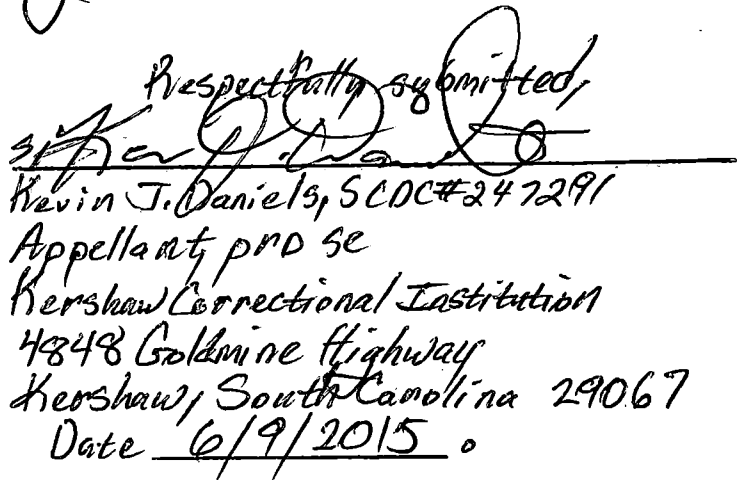 Respectfully submitted,
s/ Kevin J. Daniels
Kevin J. Daniels, SCDC#247291
Appellant, pro se
Kershaw Correctional Institution
4848 Goldmine Highway
Kershaw, South Carolina 29067
Date 6/9/2015.